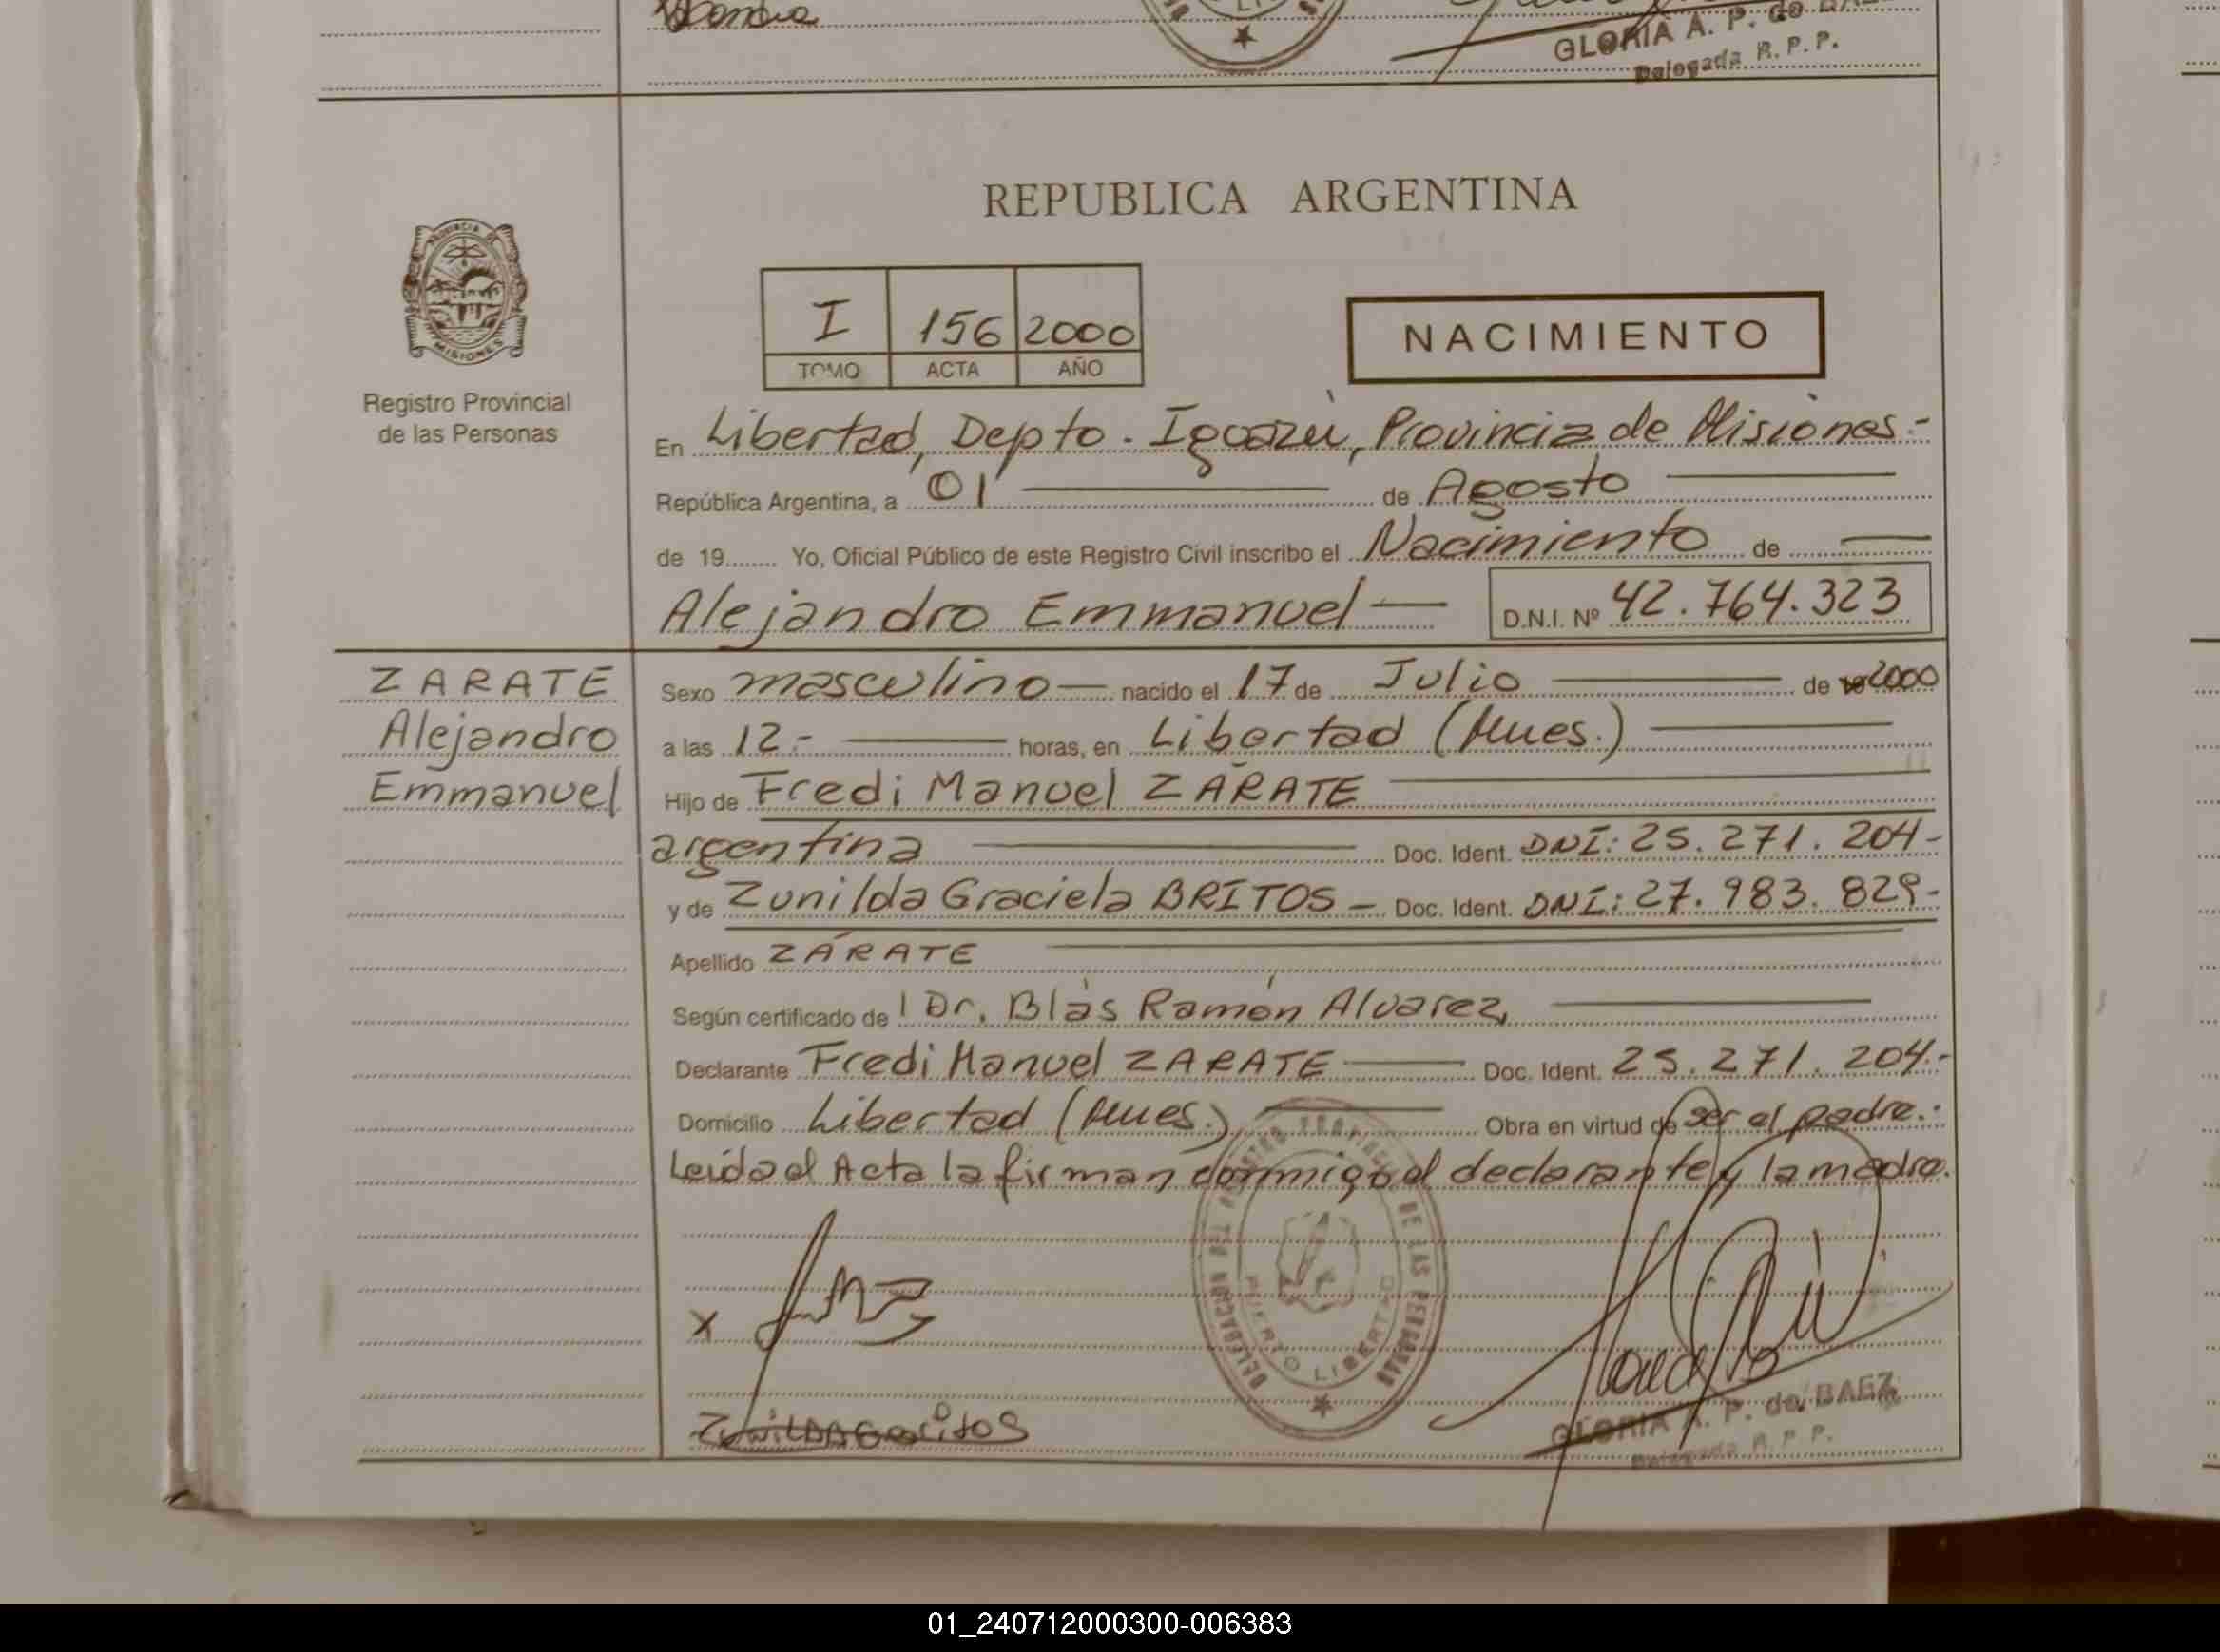 GLORIA A. P. de BAEZ
Delegada R. P. P.
REPUBLICA ARGENTINA
PROVINCIA DE
MISIONES
Registro Provincial
de las Personas
I 156 2000
TOMO ACTA AÑO
NACIMIENTO
En Libertad, Depto. Iguazú, Provincia de Misiones.-
República Argentina, a 01 de Agosto
de 19........ Yo, Oficial Público de este Registro Civil inscribo el Nacimiento de
Alejandro Emmanuel D.N.I. Nº 42.764.323
ZARATE
Alejandro
Emmanuel
Sexo masculino nacido el 17 de Julio de 2000
a las 12.- horas, en Libertad (Mnes.)
Hijo de Fredi Manuel ZÁRATE
argentina Doc. Ident. DNI: 25.271.204-
y de Zunilda Graciela BRITOS - Doc. Ident. DNI: 27.983.829-
Apellido ZÁRATE
Según certificado del Dr. Blás Ramón Alvarez,
Declarante Fredi Manuel ZARATE Doc. Ident. 25.271.204.-
Domicilio Libertad (Mnes.) Obra en virtud de ser el padre.:
Leída el Acta la firman conmigo el declarante y la madre.
DELEGACION REGISTRO PROVINCIAL DE LAS PERSONAS
PUERTO LIBERTAD
X
GLORIA A. P. de BAEZ
Delegada R. P. P.
01_240712000300-006383